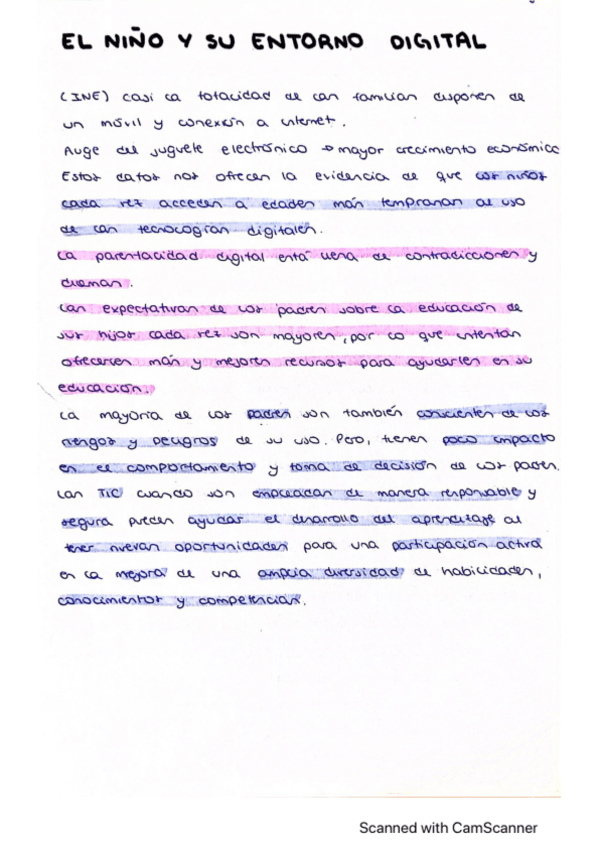 EL NIÑO Y SU ENTORNO DIGITAL
(INE) casi la totalidad de las familias disponen de
un móvil y conexión a internet.
Auge del juguete electrónico → mayor crecimiento económico
Estos datos nos ofrecen la evidencia de que los niños
cada vez acceden a edades más tempranas al uso
de las tecnologías digitales.
La parentalidad digital está llena de contradicciones y
dilemas.
Las expectativas de los padres sobre la educación de
sus hijos cada vez son mayores, por lo que intentan
ofrecerles más y mejores recursos para ayudarles en su
educación.
La mayoría de los padres son también conscientes de los
riesgos y peligros de su uso. Pero, tienen poco impacto
en el comportamiento y toma de decisión de los padres.
Las TIC cuando son empleadas de manera responsable y
segura pueden ayudar el desarrollo del aprendizaje al
tener nuevas oportunidades para una participación activa
en la mejora de una amplia diversidad de habilidades,
conocimientos y competencias.
Scanned with CamScanner